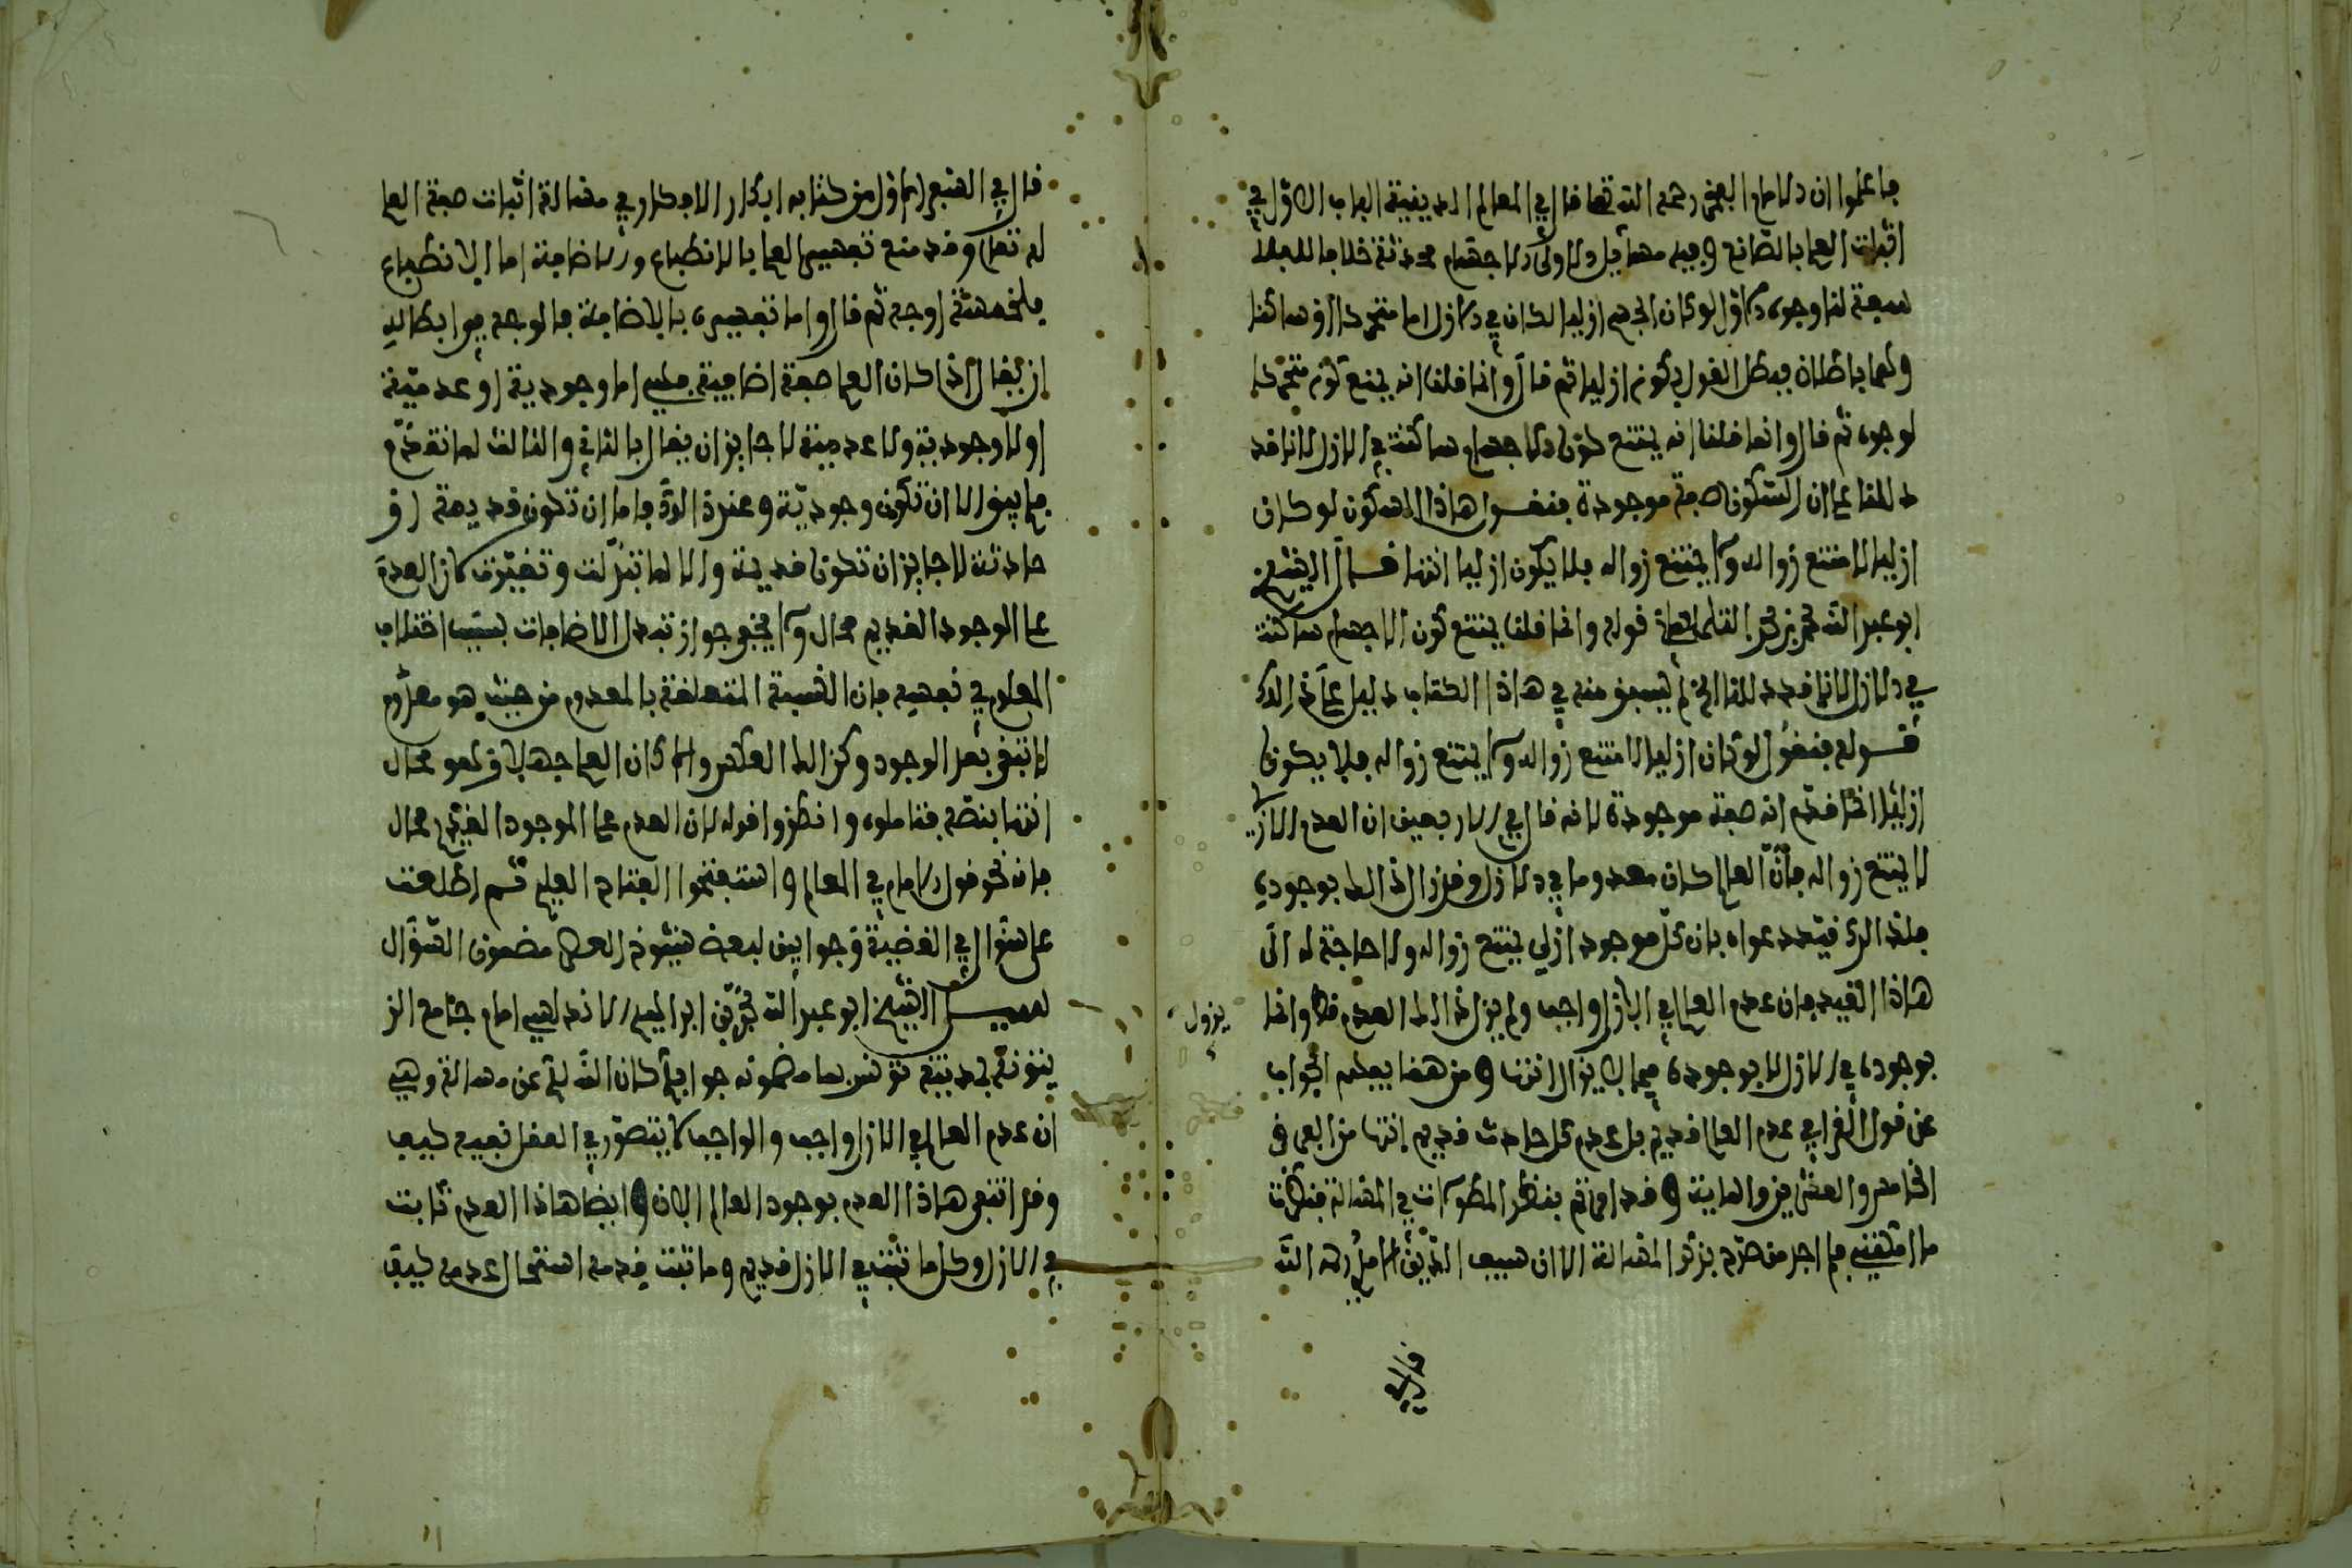 فاعلموا ان الامام الفخر رحمه الله تعا قال في المعالم الدينية الباب الاول في
اثبات العلم بالصانع وفيه مسايل الاولى الاجسام محدثة خلافا للفلا
سفة لنا وجوه الاول لو كان الجسم ازليا لكان في الازل اما متحركا او ساكنا
والقسمان باطلان فبطل القول بكونه ازليا ثم قال وانما قلنا انه يمتنع كونه متحركا
لوجوه ثم قال وانما قلنا انه يمتنع كون الاجسام ساكنة في الازل لانا قد
دللنا على ان السكون صفة موجودة فنقول هاذا السكون لو كان
ازليا لامتنع زواله ولا يمتنع زواله فلا يكون ازليا انتها قال الشيخ
ابو عبد الله محمد بن التلمساني قوله وانما قلنا يمتنع كون الاجسام ساكنة
في الازل لانا قد دللنا الخ لم يسبق منه في هاذا الكتاب دليل على ذالك
قوله فنقول لو كان ازليا لامتنع زواله ولا يمتنع زواله فلا يكون
ازليا انما قدم انه صفة موجودة لانه قال في الاربعين ان العدم الازلي
لا يمتنع زواله فان العالم كان معدوما في الازل وقد زال ذالك بوجوده
فلذالك قيد دعواه بان كل موجود ازلي يمتنع زواله ولا حاجة له الى
هاذا القيد فان عدم العالم في الازل واجب ولم يزل ذالك العدم قط وانما يزول
بوجوده في الازل لا بوجوده فيما لا يزال انتها ومن هنا يعلم الجواب
عن قول القرافي عدم العالم قديم بل عدم كل حادث قديم انتها من الفرق
الخامس والعشرين والماية وقد امرتم بنظر المطولات في المسالة فنظرت
ما امكنني فلم اجد من صرح بذكر المسالة الا ان سيف الدين الامدي رحمه الله
قال في
قال في القسم الاول من كتابه ابكار الافكار في مسالة اثبات صفة العلم
له تعلى وقد منع تفسير العلم بالانطباع والاضافة اما الانطباع
فلخمسة اوجه ثم قال واما تفسيره بالاضافة فالوجه في ابطاله
ان يقال اذا كان العلم صفة اضافية فهي اما وجودية او عدمية
او لا وجودية ولا عدمية لا جايز ان يقال بالثاني والثالث لما تقدم
فلم يبق الا ان تكون وجودية وعند ذالك فاما ان تكون قديمة او
حادثة لا جايز ان تكون قديمة والا لما تبدلت وتغيرت لان العدم
على الوجود القديم محال ولا يخفى جواز تبدل الاضافات بسبب اختلاف
المعلوم في نفسه فان النسبة المتعلقة بالمعدوم من حيث هو معدوم
لا تبقى بعد الوجود وكذالك العكس والا كان العلم جهلا وهو محال
انتها بنصه فتاملوه وانظروا قوله لان العدم على الموجود القديم محال
فانه نحو قول الامام في المعالم واستفتحوا الفتاح العليم ثم اطلعت
على سؤال في القضية وجوابين لبعض شيوخ العصر مضمون السؤال
لسيدي الشيخ ابو عبد الله محمد بن ابراهيم الاندلسي امام جامع الز
يتونة بمدينة تونس بما مضمونه جوابكم كان الله لكم عن مسالة وهي
ان عدم العالم في الازل واجب والواجب لا يتصور في العقل نفيه كيف
وقد انتفى هاذا العدم بوجود العالم الان وايضا هاذا العدم ثابت
في الازل وكل ما ثبت في الازل قديم وما ثبت قدمه استحال عدمه كيف